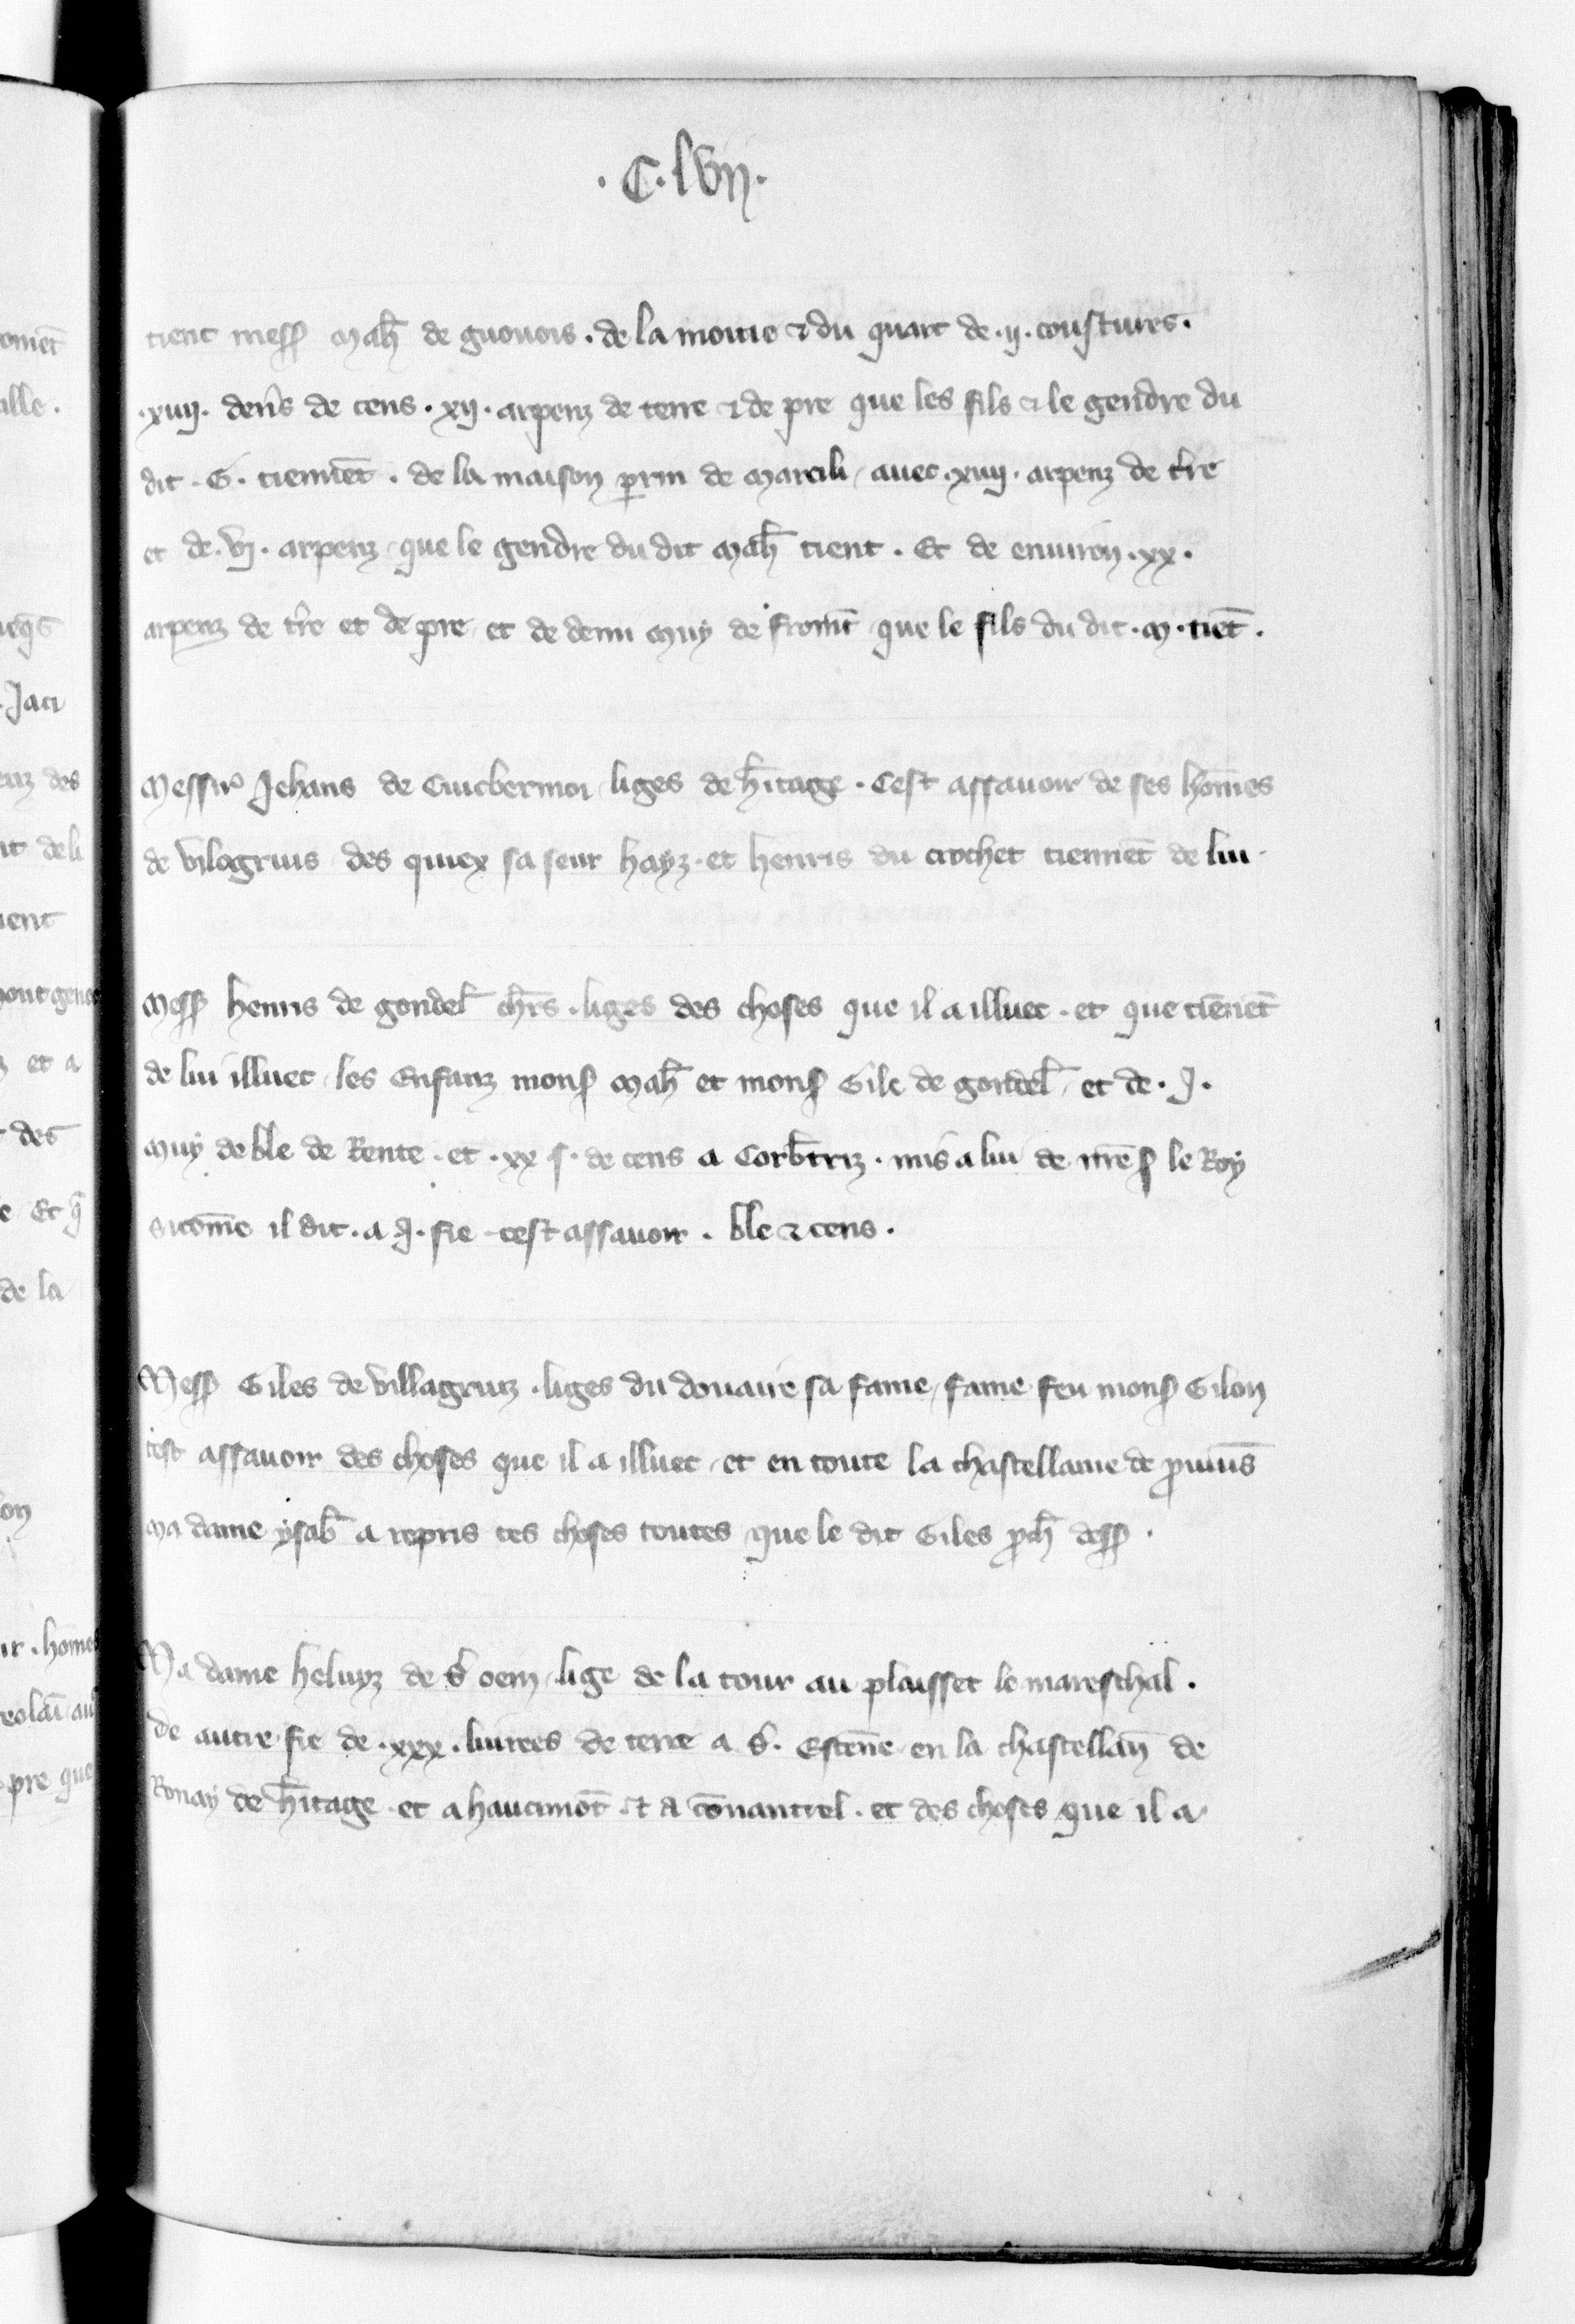 .C.lvii.
tient mess Mah̄ de guouois . de la moitie ⁊ du quart de .ij. coustures.
.xiiij. den̄s de cens . xij . arpenz de terre ⁊ de pre que les fils ⁊ le gendre du
dit . G . tiennēt . de la maison perrin de Marcili avec . xiiij . arpenz de tr̄e
et de . vj . arpenz que le gendre du dit Mah̄ tient . Et de environ . xx .
arpenz de tr̄e et de pre et de demi muy de fromt̄ que le fils du dit . M . tiēt .
Messire Jehans de Cuicbermoi liges de h̄itage . Cest assavoir de ses hōmes
de vilagruis des quiex sa seur hayz . et henris du crochet tiennēt de lui .
Mess henris de gondel̄ ch̄rs . liges des choses que il a illuec . et que tiēnēt
de lui illuec les enfanz mons Mah̄ et mons Gile de gondel̄ et de . j .
muy de ble de Rente . et . xx s . de cens a Corb̄triz . mis a lui de nr̄e s le Roy
sicōme il dit . a j . fie . cest assavoir . ble ⁊ cens .
Mess Giles de villagruiz . liges du douaire sa fame , fame feu mons Gilon
cest assavoir des choses que il a illuec et en toute la chastellanie de ꝓvins̄
Ma dame ysab̄ a repris ces choses toutes que le dit Giles ꝓch̄ dess .
Ma dame heluyz de s̄ oein lige de la tour au plaisset le mareschal .
de autre fie de . xxx . livrees de terre a s̄ . Estēne en la chastellan̄ de
Ronay de h̄itage . et a haucimōt . et a cōnantrel . et des choses que il a